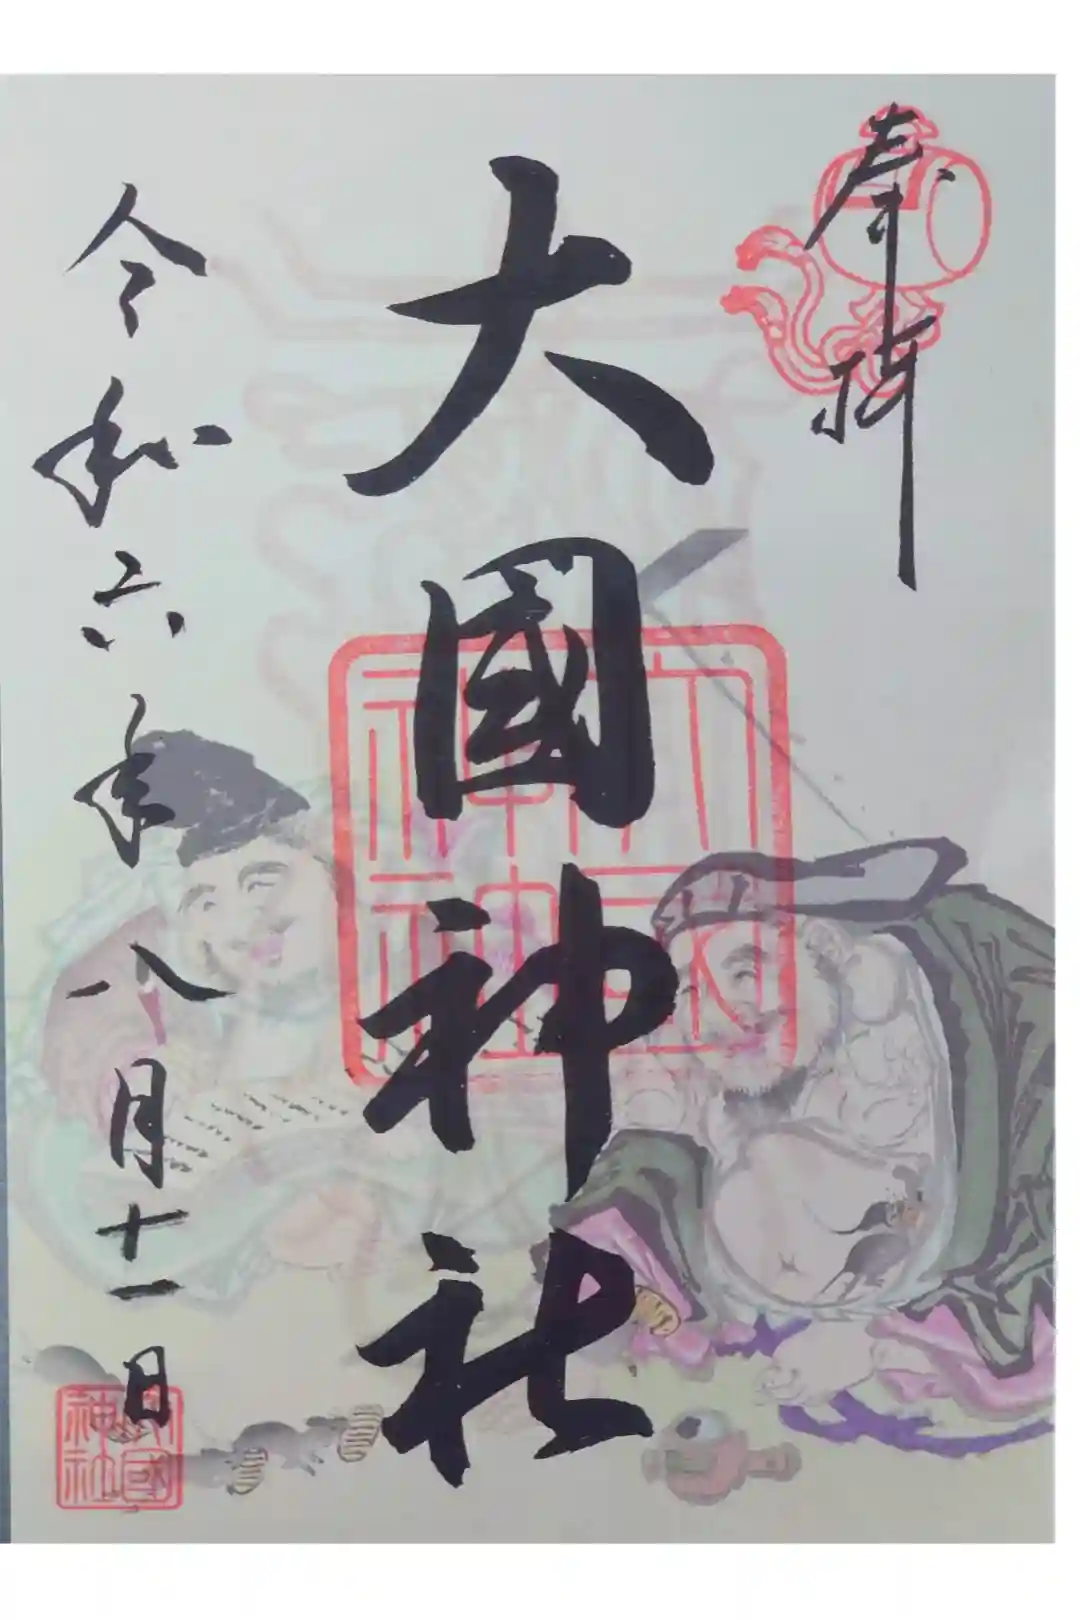 奉拝
大國神社
令和六年八月十一日
大國
神社
大國
神社